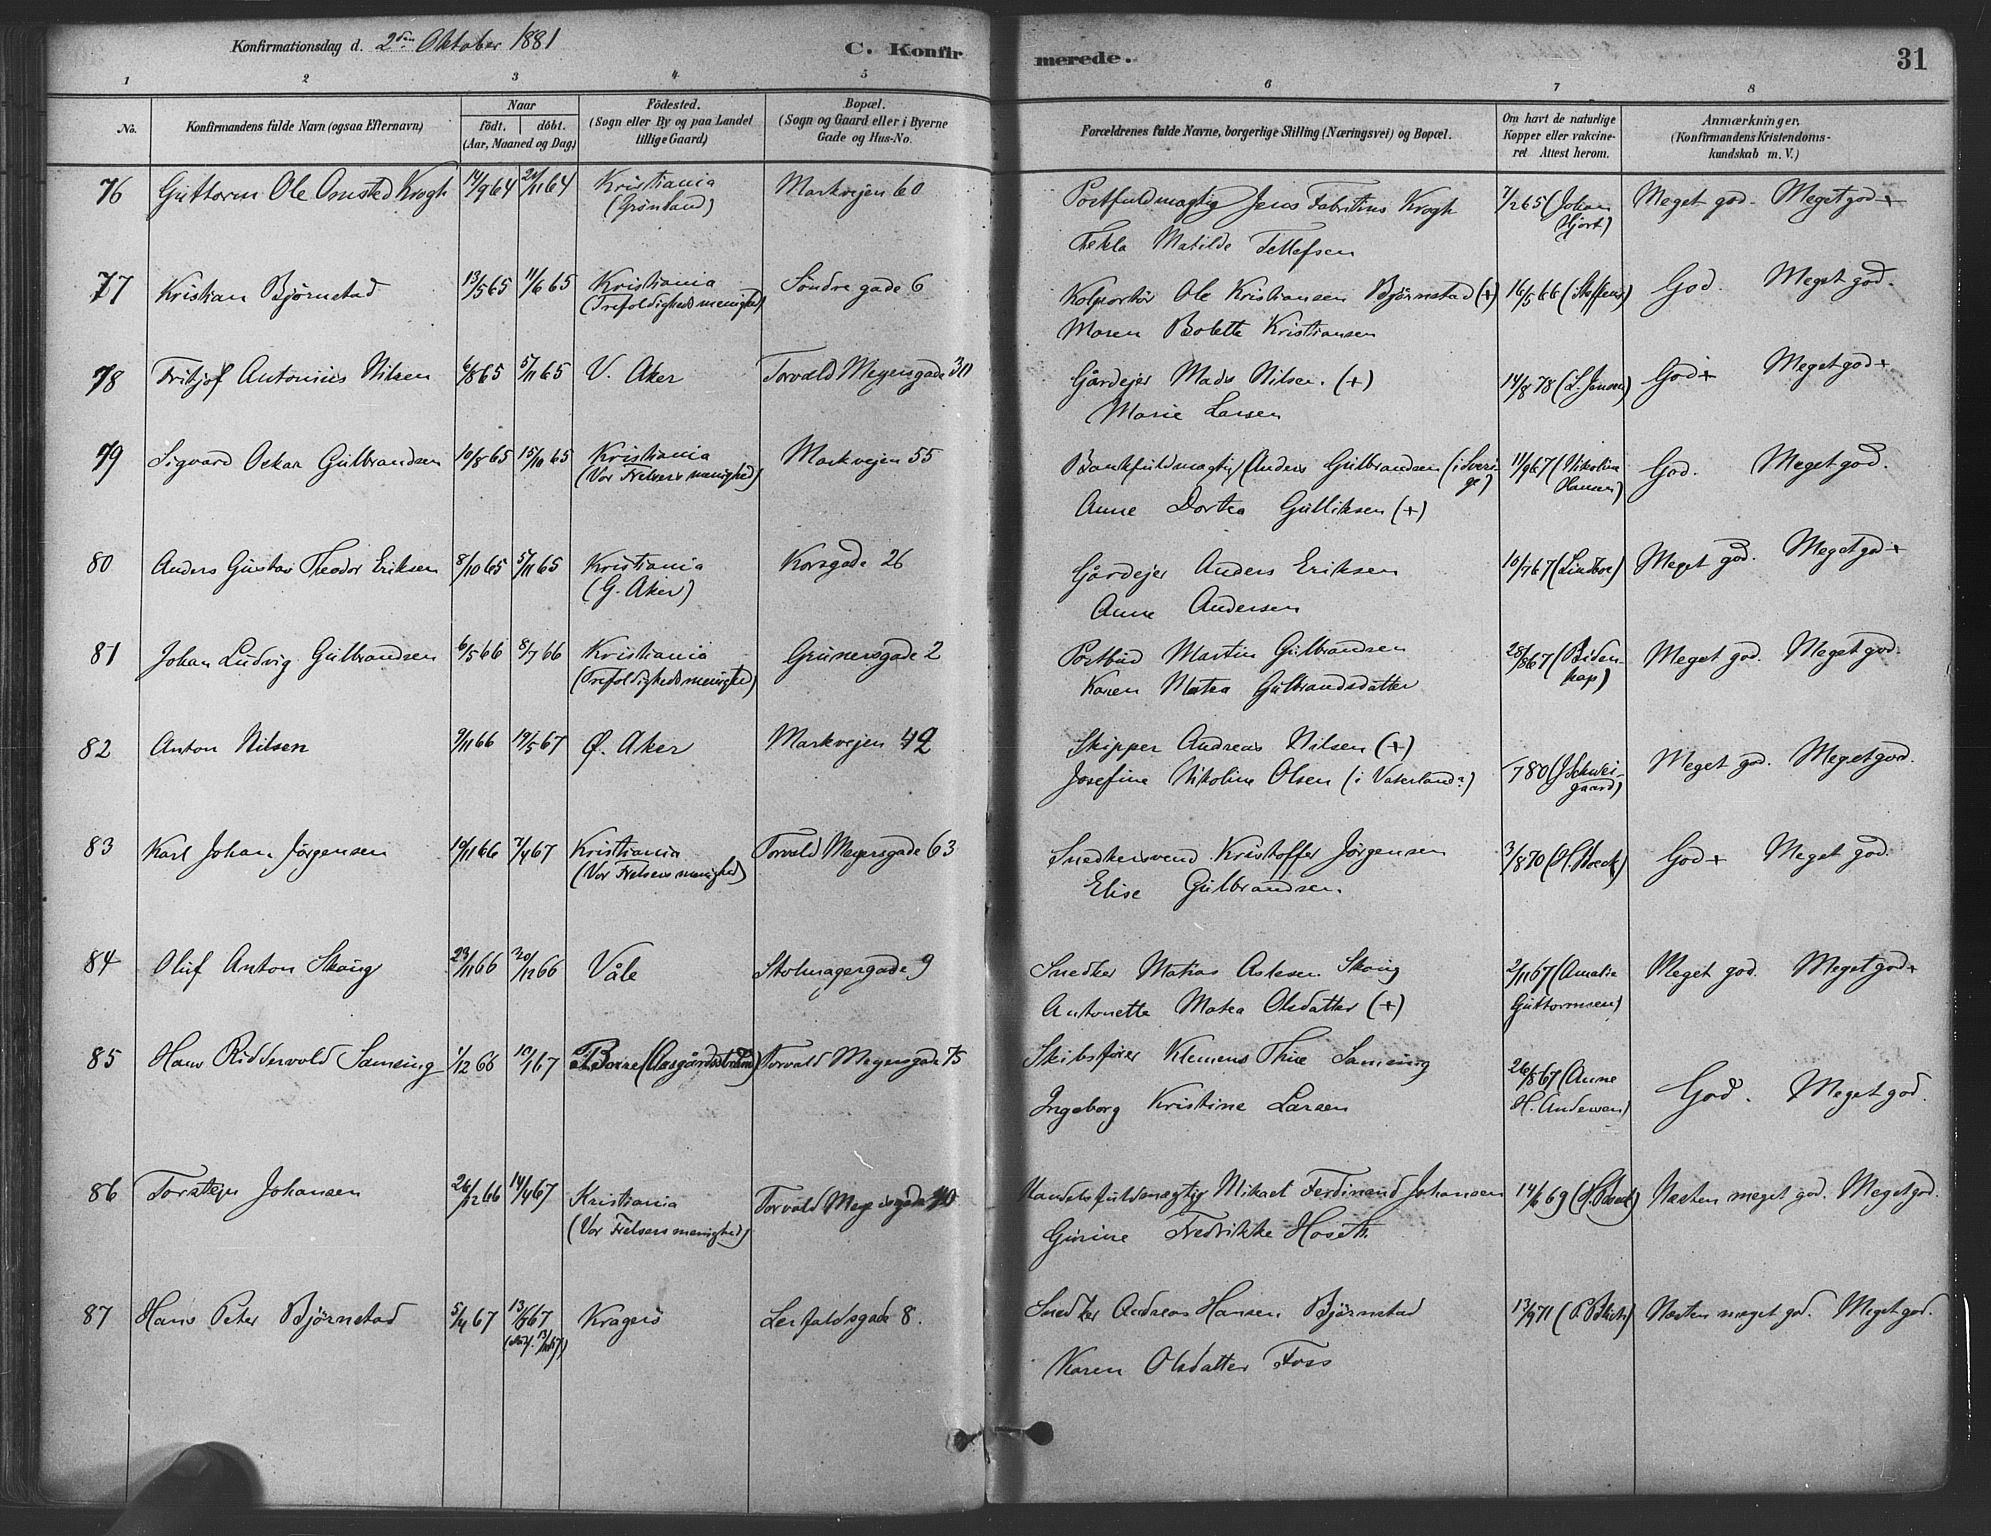 Konfirmationsdag d. 2den Oktober 1881
C. Konfirmerede.
31
1 2 3 4 5 6 7 8
No.
Konfirmandens fulde Navn (ogsaa Efternavn)
Naar
født. døbt.
(Aar, Maaned og Dag)
Födested.
(Sogn eller By og paa Landet
tillige Gaard)
Bopæl.
(Sogn og Gaard eller i Byerne
Gade og Hus-No.
Forældrenes fulde Navne, borgerlige Stilling (Næringsvei) og Bopæl.
Om havt de naturlige
Kopper eller vakcine-
ret Attest herom.
Anmærkninger.
(Konfirmandens Kristendoms-
kundskab m. V.)
76 Guttorm Ole Omsted Krogh 14/9 64 20/11 64 Kristiania Markvejen 60 Postfuldmægtig Jens Fabritius Krogh 7/2 65 (Johan Meget god. Meget god +
(Grønland) Tekla Matilde Tellefsen Hjort)
77 Kristian Bjørnstad 13/5 65 11/6 65 Kristiania Söndre gade 6 Kolportör Ole Kristiansen Bjørnstad (+) 16/5 66 (Steffens) God. Meget god.
(Trefoldighedsmenighed) Maren Bolette Kristiansen
78 Fritjof Antonius Nilsen 6/8 65 5/11 65 V. Aker Torvald Meyersgade 30 Gårdejer Mads Nilsen. (+) 14/8 78 (L. Jensen) God + Meget god +
Marie Larsen
79 Sigvard Oskar Gulbrandsen 10/8 65 15/10 65 Kristiania Markvejen 55 Bankfuldmægtig Anders Gulbrandsen (i Sveri- 11/9 67 (Nikoline God. Meget god.
(Vor Frelsers menighed) ge) Hansen)
Anne Dortea Gulliksen (+)
80 Anders Gustav Theodor Eriksen 8/10 65 5/11 65 Kristiania Korsgade 26 Gårdejer Anders Eriksen 10/7 67 (Lindboe) Meget god. Meget god +
(G. Aker) Anne Andersen
81 Johan Ludvig Gulbrandsen 6/5 66 8/7 66 Kristiania Grünersgade 2 Postbud Martin Gulbrandsen 28/8 67 (Biden- Meget god. Meget god.
(Trefoldighedsmenighed) Karen Matea Gulbrandsdatter kap)
82 Anton Nilsen 9/11 66 19/5 67 Ø. Aker Markvejen 42 Skipper Andreas Nilsen (+)
Josefine Nikoline Olsen (i Vaterland?) /7 80 (Schwei- Meget god. Meget god.
gaard)
83 Karl Johan Jørgensen 10/11 66 7/4 67 Kristiania Torvald Meyersgade 63 Snedkersvend Kristoffer Jørgensen 3/8 70 (H. Boeck) God + Meget god.
(Vor Frelsers menighed) Elise Gulbrandsen
84 Oluf Anton Skoug 23/11 66 30/12 66 Våle Stolmagergade 9 Snedker Matias Aslesen Skoug 2/11 67 (Amalie Meget god. Meget god +
Antonette Matea Olsdatter (+) Guttormsen)
85 Hans Riddervold Samsing 1/12 66 10/1 67 Borre (Aasgårdsstrand) Torvald Meyersgade 75 Skibsfører Klemens Thue Samsing 26/8 67 (Anne God. Meget god.
Ingeborg Kristine Larsen H. Andersen)
86 Torstein Johansen 26/12 66 14/4 67 Kristiania Torvald Meyersgade 40 Handelsfuldmægtig Mikael Ferdinand Johansen 14/6 69 Næsten meget god. Meget god.
(Vor Frelsers menighed) Gurine Fredrikke Hoseth
87 Hans Peter Bjørnstad 5/4 67 13/ 67 Kragerö Leirfaldsgade 8. Snedker Andreas Hansen Bjørnstad 13/9 71 Næsten meget god. Meget god.
Karen Olsdatter Foss